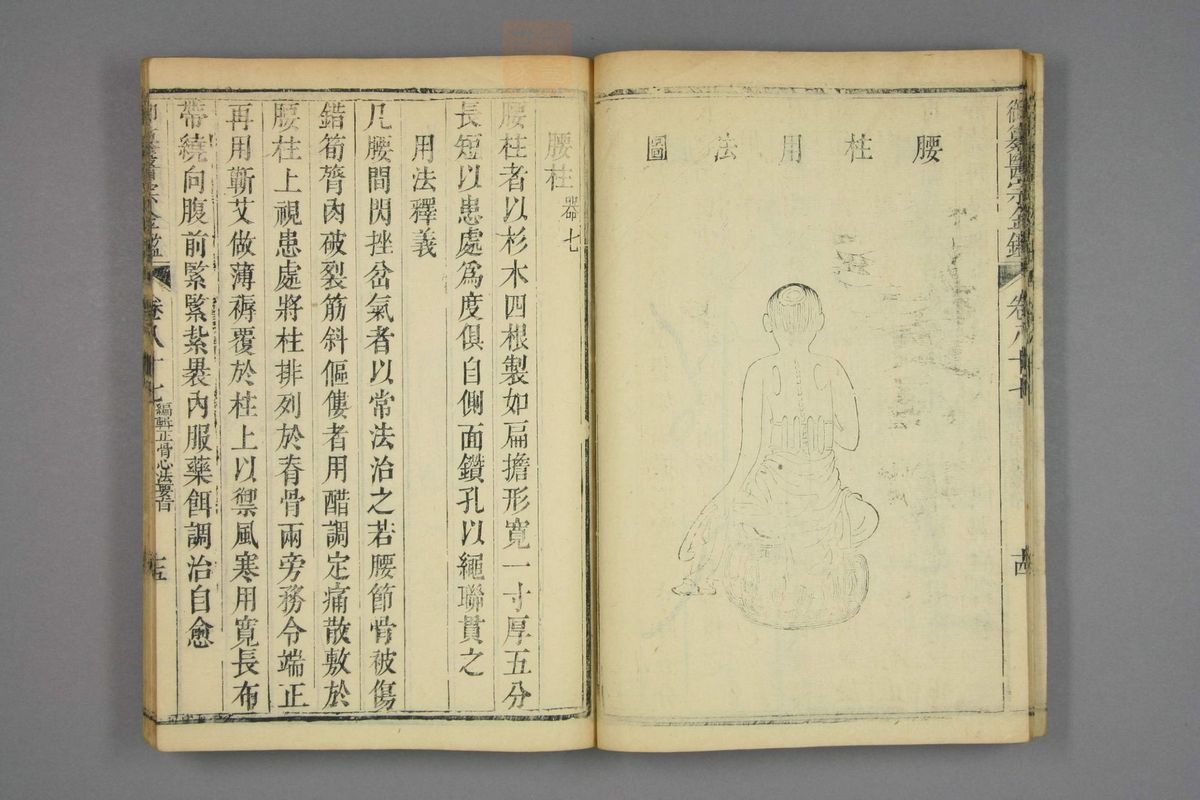 腰柱用法圖
御纂醫宗金鑑
卷八十七
十四
腰柱 器七
腰柱者以杉木四根製如扁擔形寬一寸厚五分
長短以患處爲度俱自側面鑽孔以繩聯貫之
用法釋義
凡腰間閃挫岔氣者以常法治之若腰節骨被傷
錯筍膂肉破裂筋斜傴僂者用醋調定痛散敷於
腰柱上視患處將柱排列於脊骨兩旁務令端正
再用蘄艾做薄褥覆於柱上以禦風寒用寬長布
帶繞向腹前緊緊紮褁內服藥餌調治自愈
卷八十七
編輯正骨心法要旨
十五